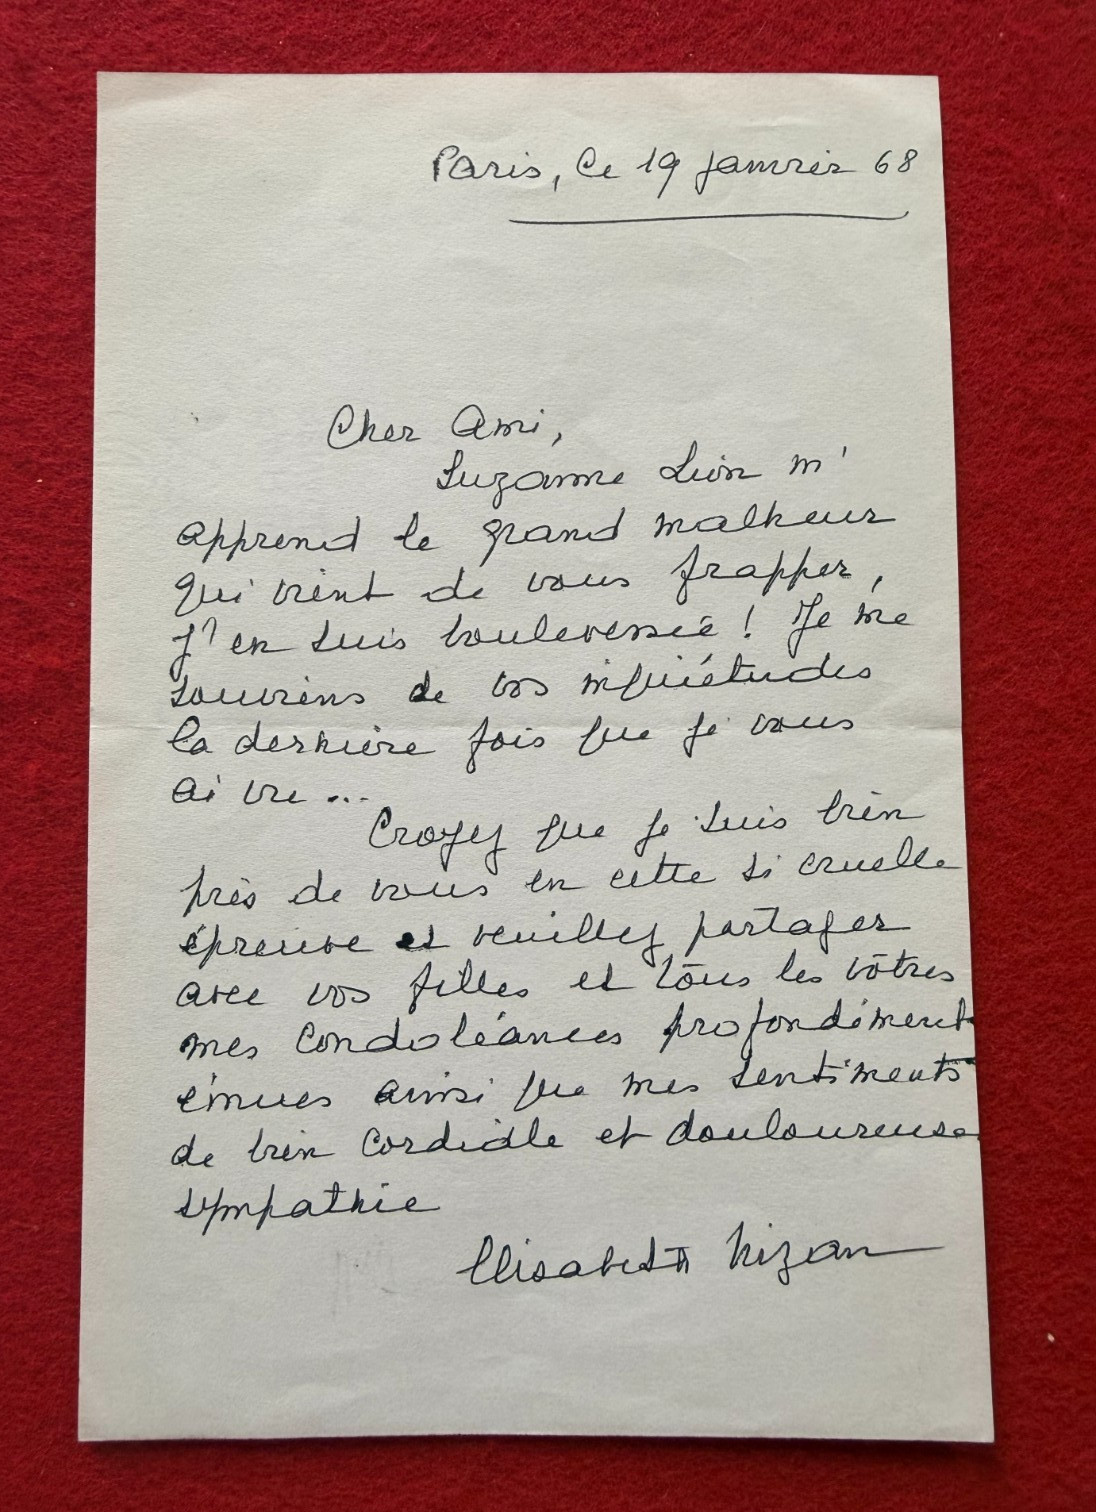 Paris, le 19 janvier 68
Cher Ami,
Suzanne Lion m'
apprend le grand malheur
qui vient de vous frapper,
J'en suis bouleversée ! Je me
souviens de vos inquiétudes
la dernière fois que je vous
ai vu ...
Croyez que je suis bien
près de vous en cette si cruelle
épreuve et veuillez partager
avec vos filles et tous les vôtres
mes condoléances profondément
émues ainsi que mes sentiments
de bien cordiale et douloureuse
sympathie
Elisabeth Nizan